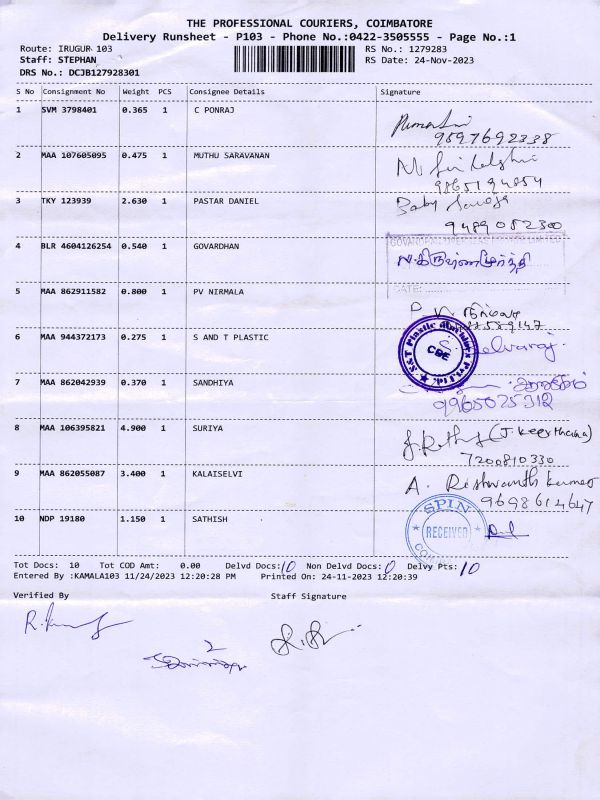 THE PROFESSIONAL COURIERS, COIMBATORE
Delivery Runsheet - P103 - Phone No.:0422-3505555 - Page No.:1
Route: IRUGUR 103 RS No.: 1279283
Staff: STEPHAN RS Date: 24-Nov-2023
DRS No.: DCJB127928301
S No Consignment No Weight PCS Consignee Details Signature
1 SVM 3798401 0.365 1 C PONRAJ
9897692338
2 MAA 107605095 0.475 1 MUTHU SARAVANAN
9865194854
3 TKY 123939 2.630 1 PASTAR DANIEL Baby
9489052300
4 BLR 4604126254 0.540 1 GOVARDHAN
DATE:
5 MAA 862911582 0.800 1 PV NIRMALA
6 MAA 944372173 0.275 1 S AND T PLASTIC S. Selvaraj
CBE
7 MAA 862042939 0.370 1 SANDHIYA
9965025312
8 MAA 106395821 4.900 1 SURIYA (J. Keerthana)
7200810330
9 MAA 862055087 3.400 1 KALAISELVI A. Rishwanth Kumar
9698614647
10 NDP 19180 1.150 1 SATHISH SPIN
RECEIVED
Tot Docs: 10 Tot COD Amt: 0.00 Delvd Docs: 10 Non Delvd Docs: 0 Delvy Pts: 10
Entered By :KAMALA103 11/24/2023 12:20:28 PM Printed On: 24-11-2023 12:20:39
Verified By Staff Signature
2